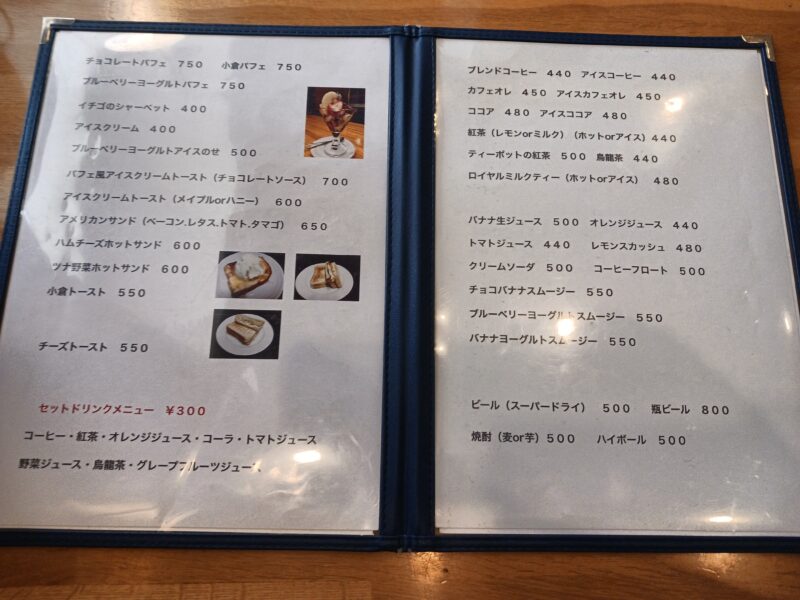 チョコレートパフェ 750 小倉パフェ 750
ブルーベリーヨーグルトパフェ 750
イチゴのシャーベット 400
アイスクリーム 400
ブルーベリーヨーグルトアイスのせ 500
パフェ風アイスクリームトースト（チョコレートソース） 700
アイスクリームトースト（メイプルorハニー） 600
アメリカンサンド（ベーコン.レタス.トマト.タマゴ） 650
ハムチーズホットサンド 600
ツナ野菜ホットサンド 600
小倉トースト 550
チーズトースト 550
セットドリンクメニュー ￥300
コーヒー・紅茶・オレンジジュース・コーラ・トマトジュース
野菜ジュース・烏龍茶・グレープフルーツジュース
ブレンドコーヒー 440 アイスコーヒー 440
カフェオレ 450 アイスカフェオレ 450
ココア 480 アイスココア 480
紅茶（レモンorミルク）（ホットorアイス）440
ティーポットの紅茶 500 烏龍茶 440
ロイヤルミルクティー（ホットorアイス） 480
バナナ生ジュース 500 オレンジジュース 440
トマトジュース 440 レモンスカッシュ 480
クリームソーダ 500 コーヒーフロート 500
チョコバナナスムージー 550
ブルーベリーヨーグルトスムージー 550
バナナヨーグルトスムージー 550
ビール（スーパードライ） 500 瓶ビール 800
焼酎（麦or芋）500 ハイボール 500